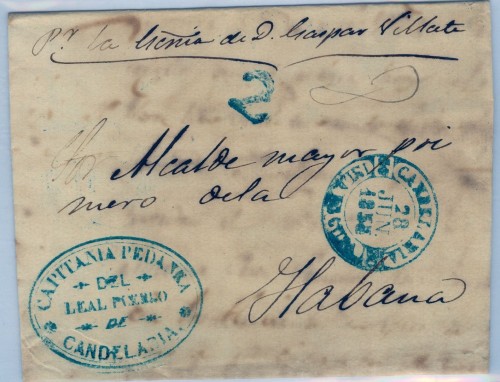 Pr. la Escnia de D. Gaspar Villate
2
Sor Alcalde mayor pri
mero de la
Habana
CANDELARIA
28
JUN
1858
CAPITANIA PEDANEA
DEL
LEAL PUEBLO
DE
CANDELARIA.